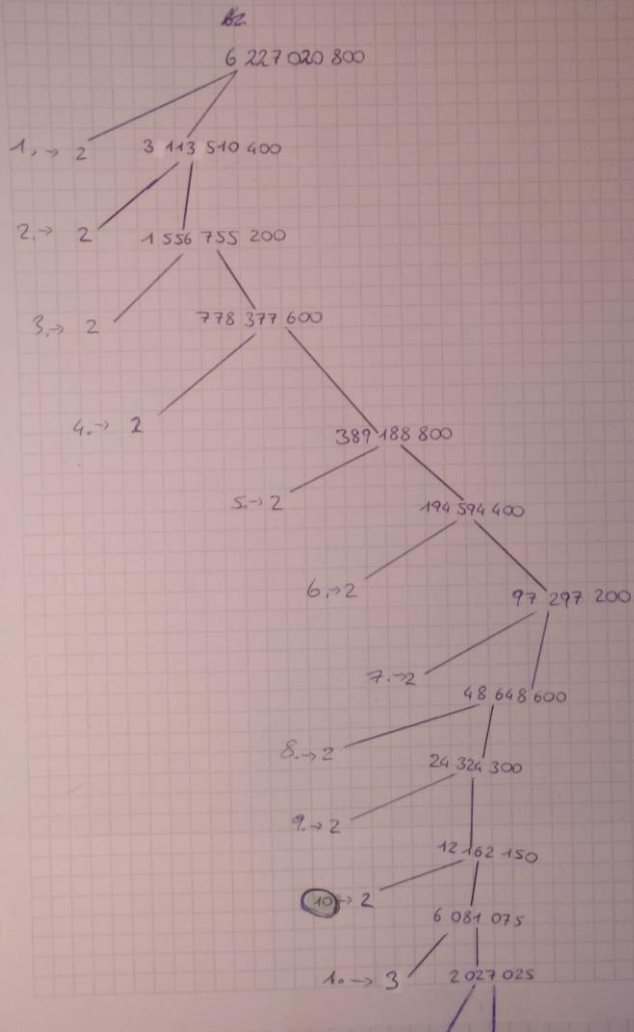 6 227 020 800
1. → 2 3 113 510 400
2. → 2 1 556 755 200
3. → 2 778 377 600
4. → 2
389 188 800
5. → 2 194 594 400
6. → 2 97 297 200
7. → 2
48 648 600
8. → 2
24 324 300
9. → 2
12 162 150
10 → 2
6 081 075
1. → 3 2 027 025